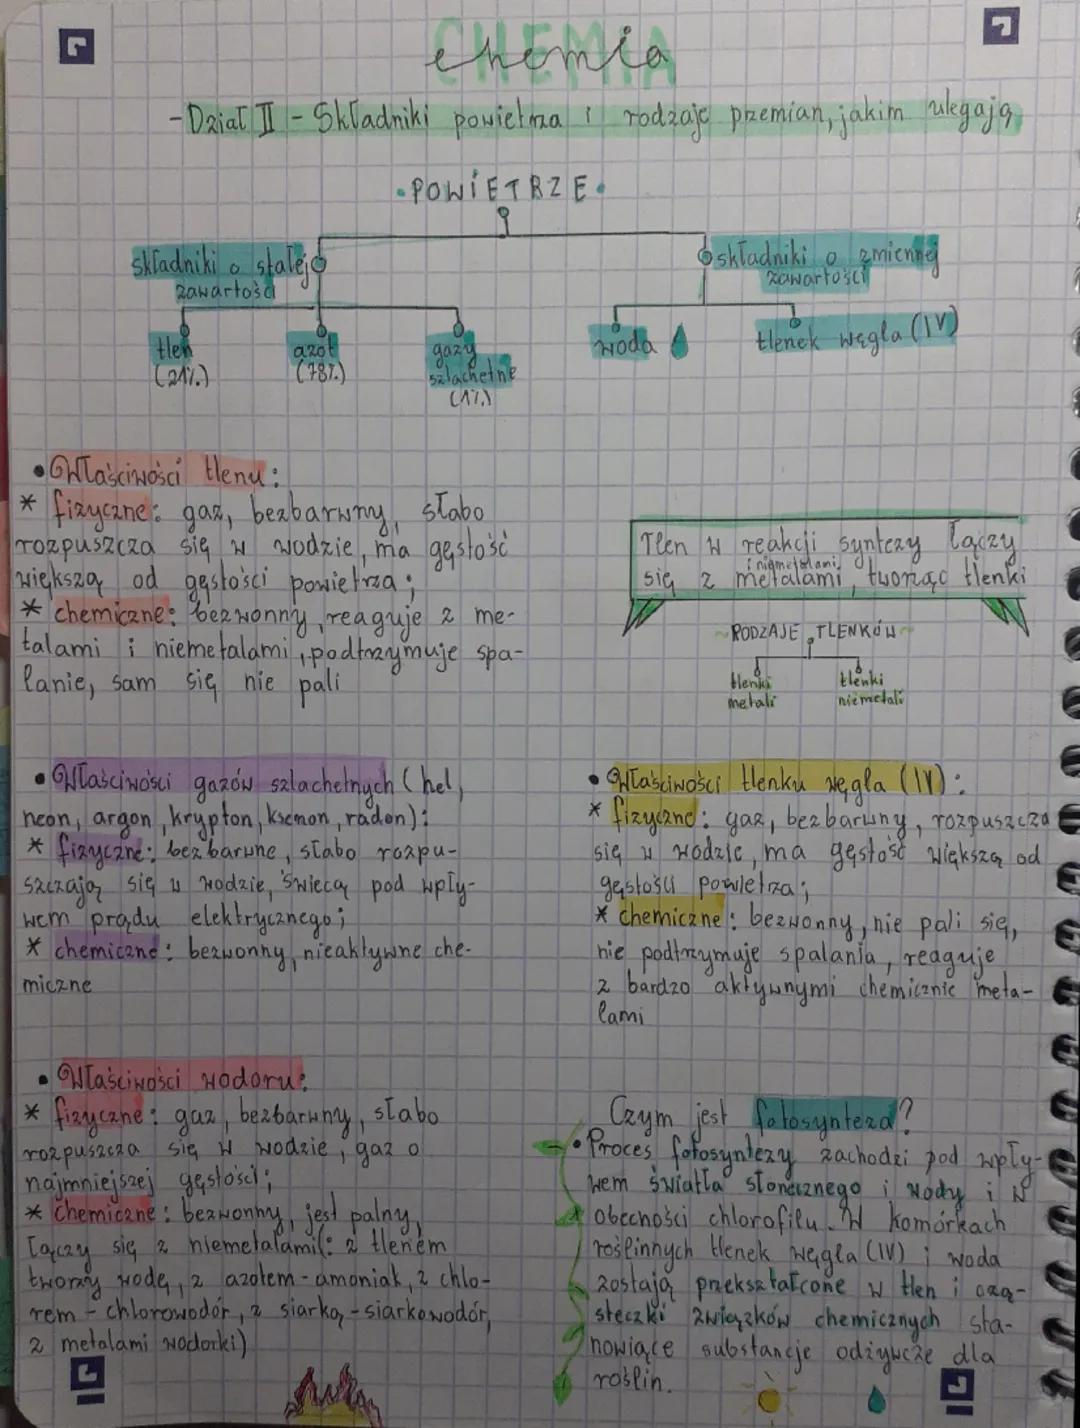 CHEMIA
chemia
- Dział II - Składniki powietrza i rodzaje przemian, jakim ulegają
• POWIETRZE •
składniki o stałej
zawartości
składniki o zmiennej
zawartości
tlen
(21%)
azot
(78%)
gazy
szlachetne
(1%)
woda
tlenek węgla (IV)
• Właściwości tlenu:
* fizyczne: gaz, bezbarwny, słabo
rozpuszcza się w wodzie, ma gęstość
większą od gęstości powietrza;
* chemiczne: bezwonny, reaguje z me-
talami i niemetalami, podtrzymuje spa-
lanie, sam się nie pali
Tlen w reakcji syntezy łączy
i niemetalami
się z metalami, tworząc tlenki
~ RODZAJE TLENKÓW ~
tlenki
metali
tlenki
niemetali
• Właściwości gazów szlachetnych (hel,
neon, argon, krypton, ksenon, radon):
* fizyczne: bezbarwne, słabo rozpu-
szczają się w wodzie, świecą pod wpły-
wem prądu elektrycznego;
* chemiczne: bezwonny, nieaktywne che-
miczne
• Właściwości tlenku węgla (IV):
* fizyczne: gaz, bezbarwny, rozpuszcza
się w wodzie, ma gęstość większą od
gęstości powietrza;
* chemiczne: bezwonny, nie pali się,
nie podtrzymuje spalania, reaguje
z bardzo aktywnymi chemicznie meta-
lami
• Właściwości wodoru:
* fizyczne: gaz, bezbarwny, słabo
rozpuszcza się w wodzie, gaz o
najmniejszej gęstości;
* chemiczne: bezwonny, jest palny,
łączy się z niemetalami(: z tlenem
tworzy wodę, z azotem - amoniak, z chlo-
rem - chlorowodór, z siarką - siarkowodór,
z metalami wodorki)
Czym jest fotosynteza?
• Proces fotosyntezy zachodzi pod wpły-
wem światła słonecznego i wody i w
obecności chlorofilu. W komórkach
roślinnych tlenek węgla (IV) i woda
zostają przekształcone w tlen i czą-
steczki związków chemicznych sta-
nowiące substancje odżywcze dla
roślin.